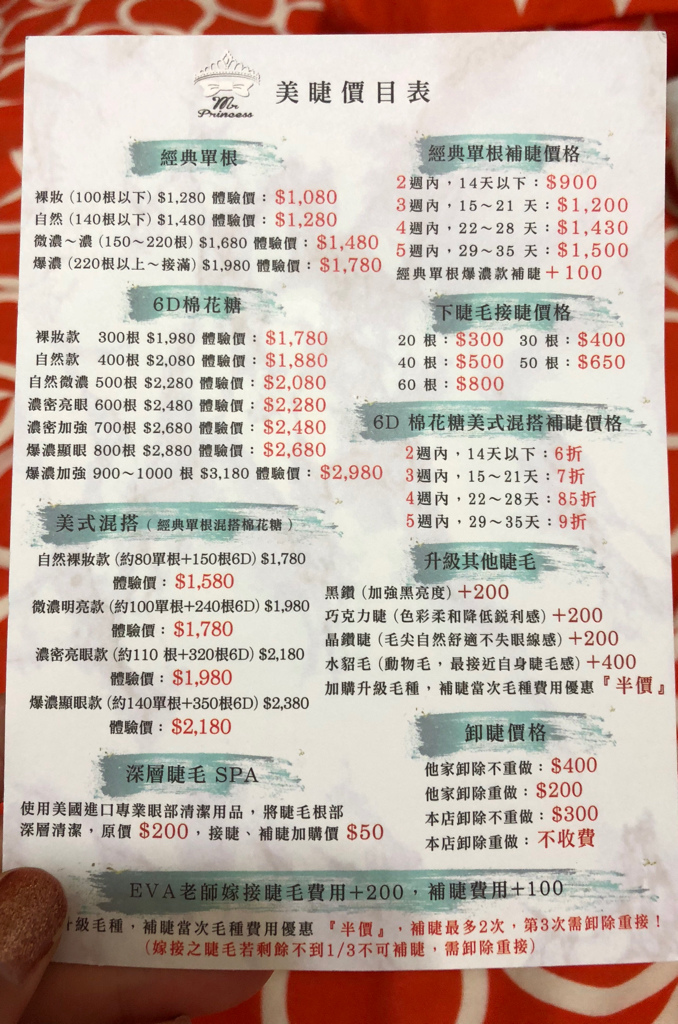 Mr
Princess
美睫價目表
經典單根
裸妝 (100根以下) $1,280 體驗價：$1,080
自然 (140根以下) $1,480 體驗價：$1,280
微濃～濃 (150～220根) $1,680 體驗價：$1,480
爆濃 (220根以上～接滿) $1,980 體驗價：$1,780
6D棉花糖
裸妝款 300根 $1,980 體驗價：$1,780
自然款 400根 $2,080 體驗價：$1,880
自然微濃 500根 $2,280 體驗價：$2,080
濃密亮眼 600根 $2,480 體驗價：$2,280
濃密加強 700根 $2,680 體驗價：$2,480
爆濃顯眼 800根 $2,880 體驗價：$2,680
爆濃加強 900～1000 根 $3,180 體驗價：$2,980
美式混搭 ( 經典單根混搭棉花糖 )
自然裸妝款 (約80單根+150根6D) $1,780
體驗價：$1,580
微濃明亮款 (約100單根+240根6D) $1,980
體驗價：$1,780
濃密亮眼款 (約110 根+320根6D) $2,180
體驗價：$1,980
爆濃顯眼款 (約140單根+350根6D) $2,380
體驗價：$2,180
深層睫毛 SPA
使用美國進口專業眼部清潔用品，將睫毛根部
深層清潔，原價 $200，接睫、補睫加購價 $50
經典單根補睫價格
2週內，14天以下：$900
3週內，15～21 天：$1,200
4週內，22～28 天：$1,430
5週內，29～35 天：$1,500
經典單根爆濃款補睫＋100
下睫毛接睫價格
20 根：$300 30 根：$400
40 根：$500 50 根：$650
60 根：$800
6D 棉花糖美式混搭補睫價格
2週內，14天以下：6折
3週內，15～21天：7折
4週內，22～28天：85折
5週內，29～35天：9折
升級其他睫毛
黑鑽 (加強黑亮度) +200
巧克力睫 (色彩柔和降低銳利感) +200
晶鑽睫 (毛尖自然舒適不失眼線感) +200
水貂毛 (動物毛，最接近自身睫毛感) +400
加購升級毛種，補睫當次毛種費用優惠『半價』
卸睫價格
他家卸除不重做：$400
他家卸除重做：$200
本店卸除不重做：$300
本店卸除重做：不收費
EVA老師嫁接睫毛費用+200，補睫費用+100
升級毛種，補睫當次毛種費用優惠『半價』，補睫最多2次，第3次需卸除重接！
(嫁接之睫毛若剩餘不到1/3不可補睫，需卸除重接)